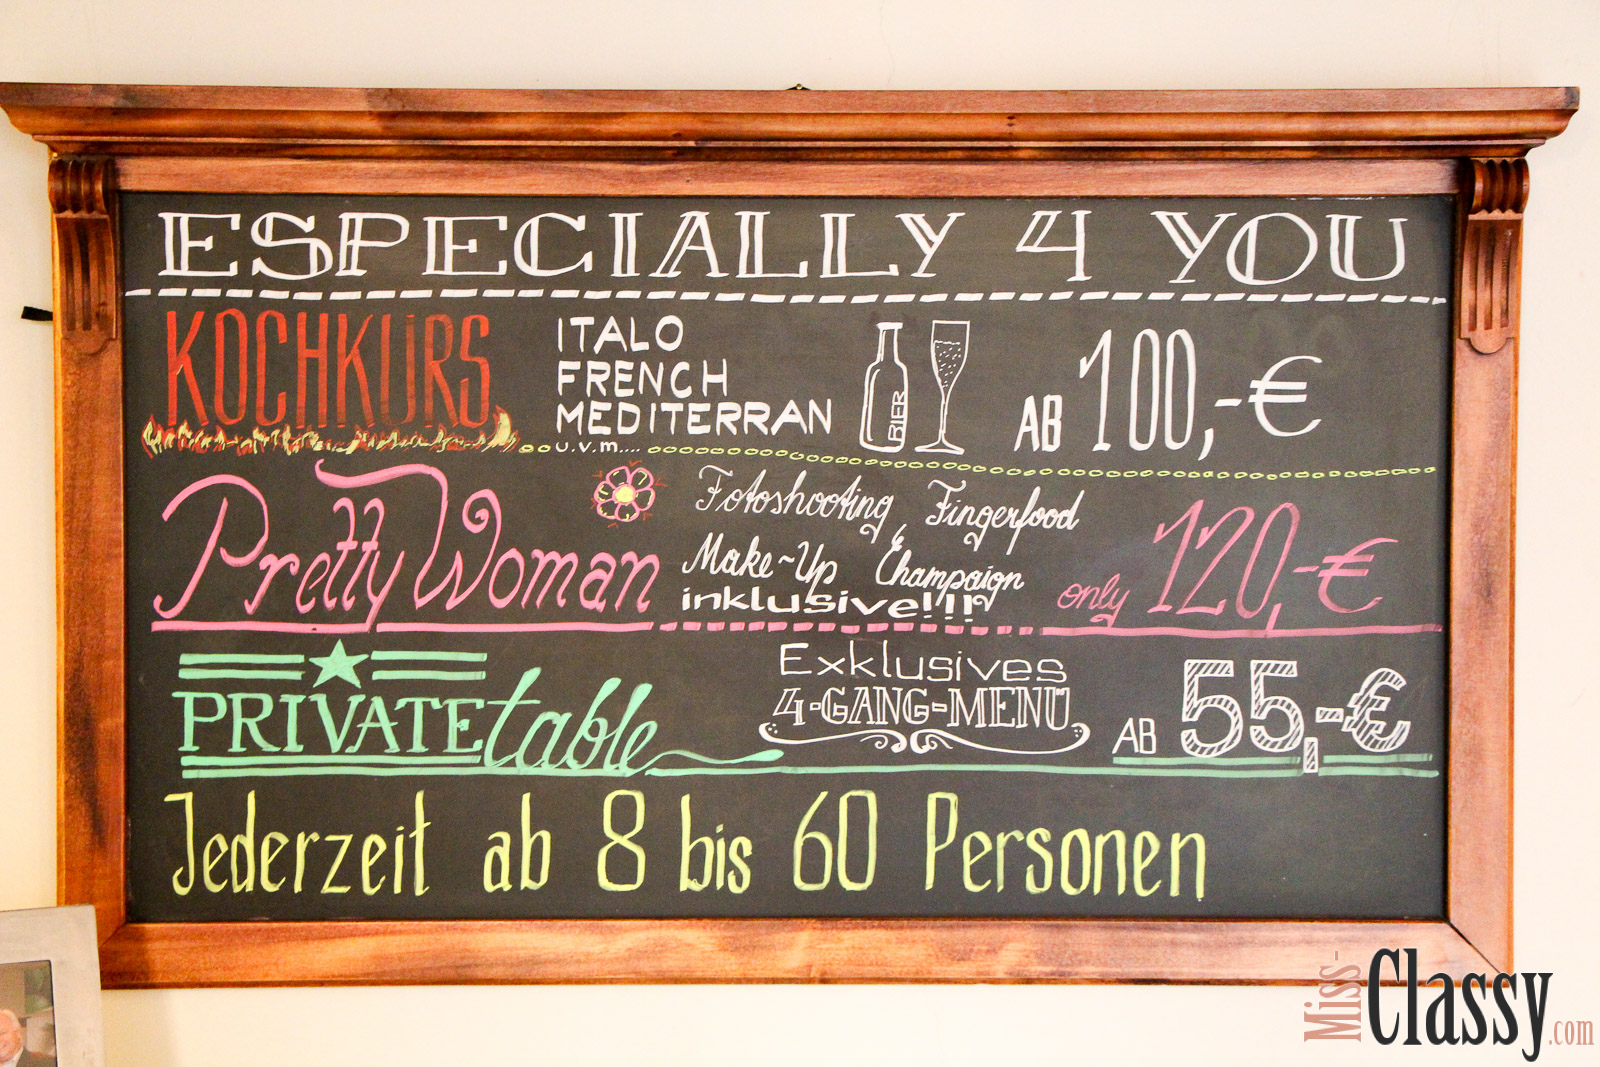 ESPECIALLY 4 YOU
KOCHKURS
ITALO
FRENCH
MEDITERRAN
u.v.m....
BIER
AB 100,-€
Pretty Woman
Fotoshooting, Fingerfood
Make-Up & Champaign
inklusive!!!!
only 120,-€
PRIVATE table
Exklusives
4-GANG-MENÜ
AB 55,-€
Jederzeit ab 8 bis 60 Personen
Miss-Classy.com